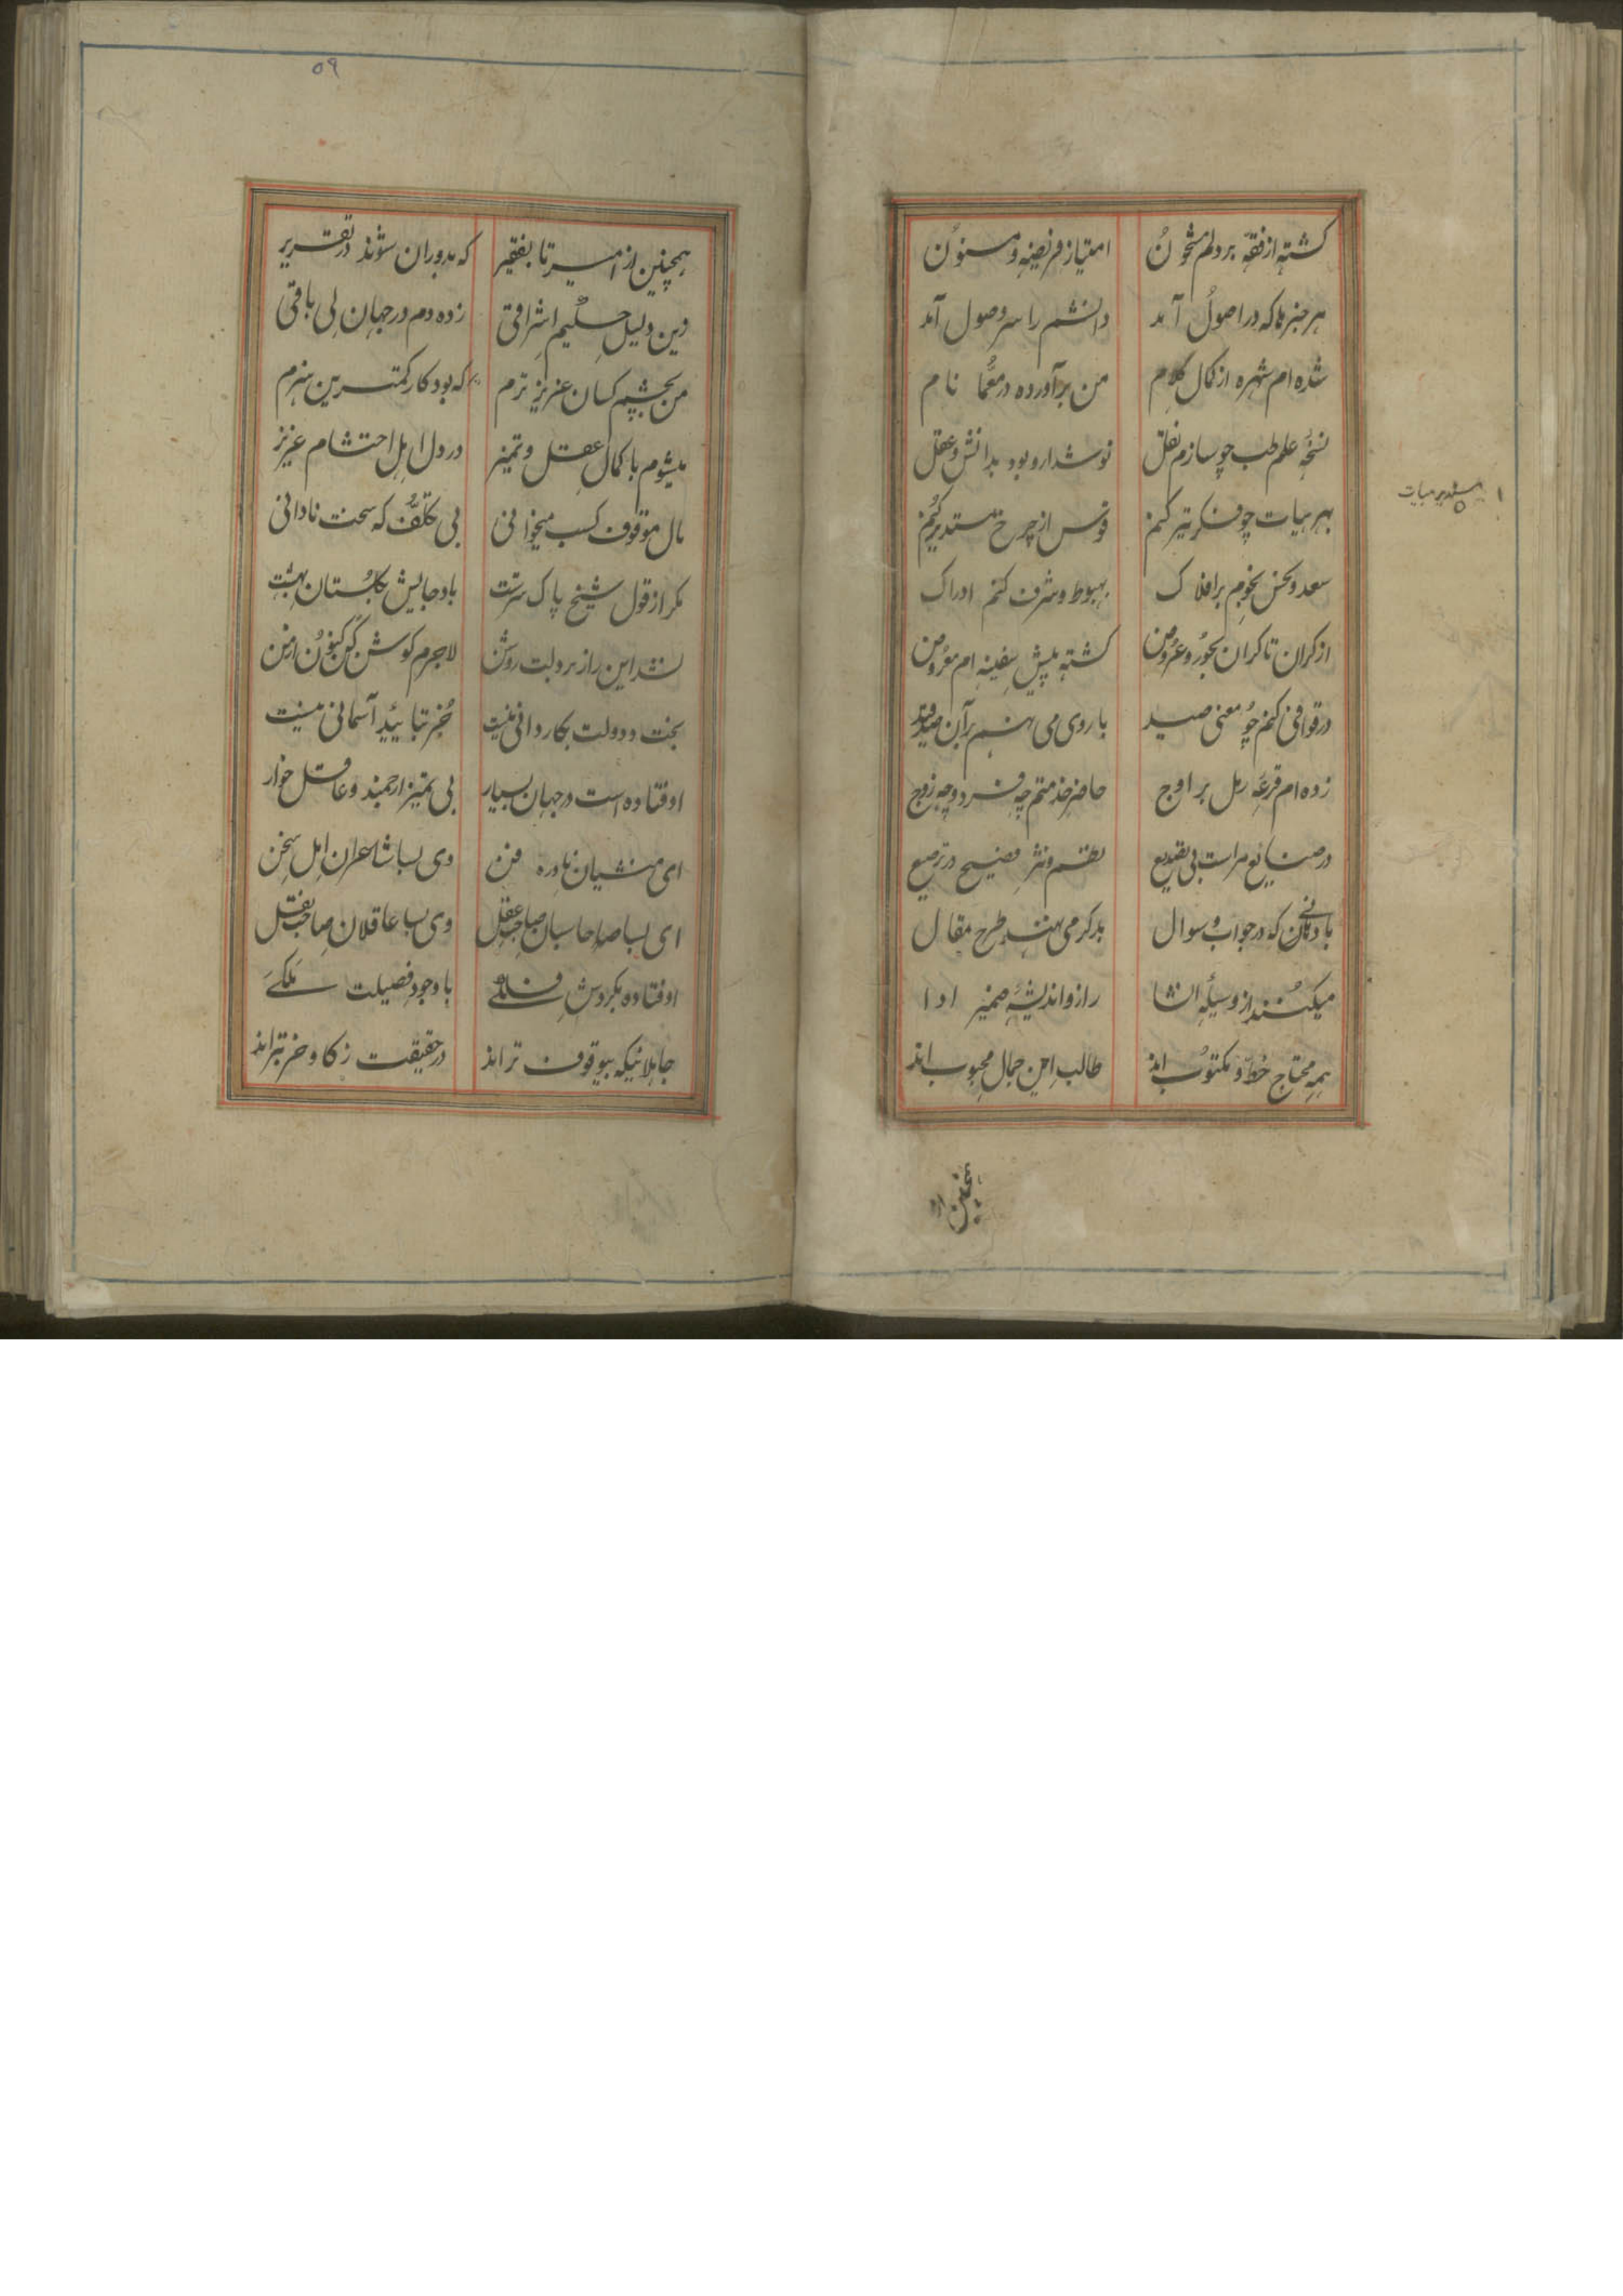 کشته از فقه بر دلم مشحون امتیاز فریضه و مسنون
هر خبرها که در اصول آمد دانشم را سر وصول آمد
شده ام شهره از کمال کلام من برآورده در معما نام
نسخهٔ علم طب چو سازم نقل نوشدارو بود بدانش و عقل
بهر هیات چو فکر تیز کنم قوس از چرخ مستدیر کنم
مستدیر هیات
سعد و نحس نجوم بر افلاک هبوط و شرف کنم ادراک
از کران تا کران بحور و عروض کشته پیش سفینه ام معروض
در قوافی کنم چو معنی صید با روی می نهم بر آن صد قید
زده ام قرعه رمل بر اوج حاضر خدمتم چه فرد و چه زوج
در صنایع مراست بی تقدیع نظم و نثر فصیح در ترصیع
با دبانی که در جواب و سوال بدکر می نهند طرح مقال
میکنند از وسیلهٔ انشا راز و اندیشهٔ ضمیر ادا
همه محتاج خط و مکتوب اند طالب این جمال محبوب اند
همچنین از
٥٩
همچنین از امیر تا بفقیر که بدوران شوند در تقریر
وین دلیل حکیم اشراقی زده دم در جهان بی باقی
من بچشم کسان عزیز ترم که بود کار کمترین هنرم
میشوم با کمال عقل و تمیز در دل اهل احتشام عزیز
مال موقوف کسب میخوانی بی تکلف که سخت نادانی
مکر از قول شیخ پاک سرشت باد جایش بکلستان بهشت
نشد این راز بر دلت روشن لاجرم کوش کن کنون از من
بخت و دولت بکاردانی نیست جز بتایید آسمانی نیست
اوفتاده است در جهان بسیار بی تمیز ارجمند و عاقل خوار
ای منشیان نادره فن وی بسا شاعران اهل سخن
ای بسا صاحبان صاحب عقل وی بسا عاقلان صاحب نقل
اوفتاده بکردش فلکی با وجود فضیلت ملکی
جاهلانیکه بیوقوف تر اند در حقیقت ز کاو خر بتر اند